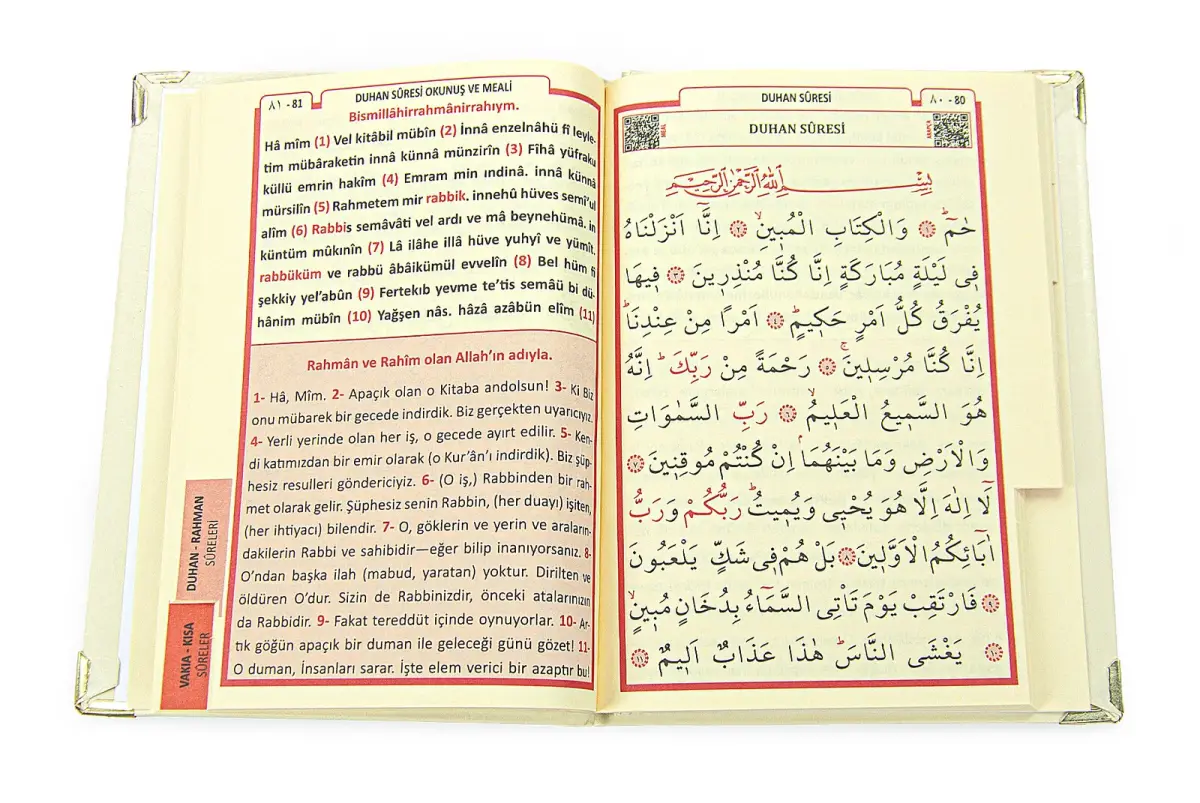 ٨١ - 81
DUHAN SÛRESİ OKUNUŞ VE MEALİ
Bismillâhirrahmânirrahıym.
Hâ mîm (1) Vel kitâbil mübîn (2) İnnâ enzelnâhü fî leyle-
tim mübâraketin innâ künnâ münzirîn (3) Fîhâ yüfraku
küllü emrin hakîm (4) Emram min ındinâ. innâ künnâ
mürsilîn (5) Rahmetem mir rabbik. innehû hüves semî'ul
alîm (6) Rabbis semâvâti vel ardı ve mâ beynehümâ. in
küntüm mûkınîn (7) Lâ ilâhe illâ hüve yuhyî ve yümît.
rabbüküm ve rabbü âbâikümül evvelîn (8) Bel hüm fî
şekkiy yel'abûn (9) Fertekıb yevme te'tis semâü bi dü-
hânim mübîn (10) Yağşen nâs. hâzâ azâbün elîm (11)
Rahmân ve Rahîm olan Allah'ın adıyla.
1- Hâ, Mîm. 2- Apaçık olan o Kitaba andolsun! 3- Ki Biz
onu mübarek bir gecede indirdik. Biz gerçekten uyarıcıyız.
4- Yerli yerinde olan her iş, o gecede ayırt edilir. 5- Ken-
di katımızdan bir emir olarak (o Kur'ân'ı indirdik). Biz şüp-
hesiz resulleri göndericiyiz. 6- (O iş,) Rabbinden bir rah-
met olarak gelir. Şüphesiz senin Rabbin, (her duayı) işiten,
(her ihtiyacı) bilendir. 7- O, göklerin ve yerin ve araların-
dakilerin Rabbi ve sahibidir—eğer bilip inanıyorsanız. 8-
O'ndan başka ilah (mabud, yaratan) yoktur. Dirilten ve
öldüren O'dur. Sizin de Rabbinizdir, önceki atalarınızın
da Rabbidir. 9- Fakat tereddüt içinde oynuyorlar. 10- Ar-
tık göğün apaçık bir duman ile geleceği günü gözet! 11-
O duman, İnsanları sarar. İşte elem verici bir azaptır bu!
DUHAN - RAHMAN
SÛRELERİ
VAKIA - KISA
SÛRELER
DUHAN SÛRESİ
٨٠ - 80
MEAL
DUHAN SÛRESİ
ARAPÇA
بِسْمِ اللّٰهِ الرَّحْمٰنِ الرَّحٖيمِ
حٰمٓ ﴿١﴾ وَالْكِتَابِ الْمُبٖينِ ﴿٢﴾ اِنَّٓا اَنْزَلْنَاهُ
فٖى لَيْلَةٍ مُبَارَكَةٍ اِنَّا كُنَّا مُنْذِرٖينَ ﴿٣﴾ فٖيهَا
يُفْرَقُ كُلُّ اَمْرٍ حَكٖيمٍ ﴿٤﴾ اَمْرًا مِنْ عِنْدِنَا
اِنَّا كُنَّا مُرْسِلٖينَ ﴿٥﴾ رَحْمَةً مِنْ رَبِّكَ اِنَّهُ
هُوَ السَّمٖيعُ الْعَلٖيمُ ﴿٦﴾ رَبِّ السَّمٰوَاتِ
وَالْاَرْضِ وَمَا بَيْنَهُمَا اِنْ كُنْتُمْ مُوقِنٖينَ ﴿٧﴾
لَٓا اِلٰهَ اِلَّا هُوَ يُحْيٖى وَيُمٖيتُ رَبُّكُمْ وَرَبُّ
اٰبَٓائِكُمُ الْاَوَّلٖينَ ﴿٨﴾ بَلْ هُمْ فٖى شَكٍّ يَلْعَبُونَ
﴿٩﴾ فَارْتَقِبْ يَوْمَ تَاْتِى السَّمَٓاءُ بِدُخَانٍ مُبٖينٍ
﴿١٠﴾ يَغْشَى النَّاسَ هٰذَا عَذَابٌ اَلٖيمٌ ﴿١١﴾